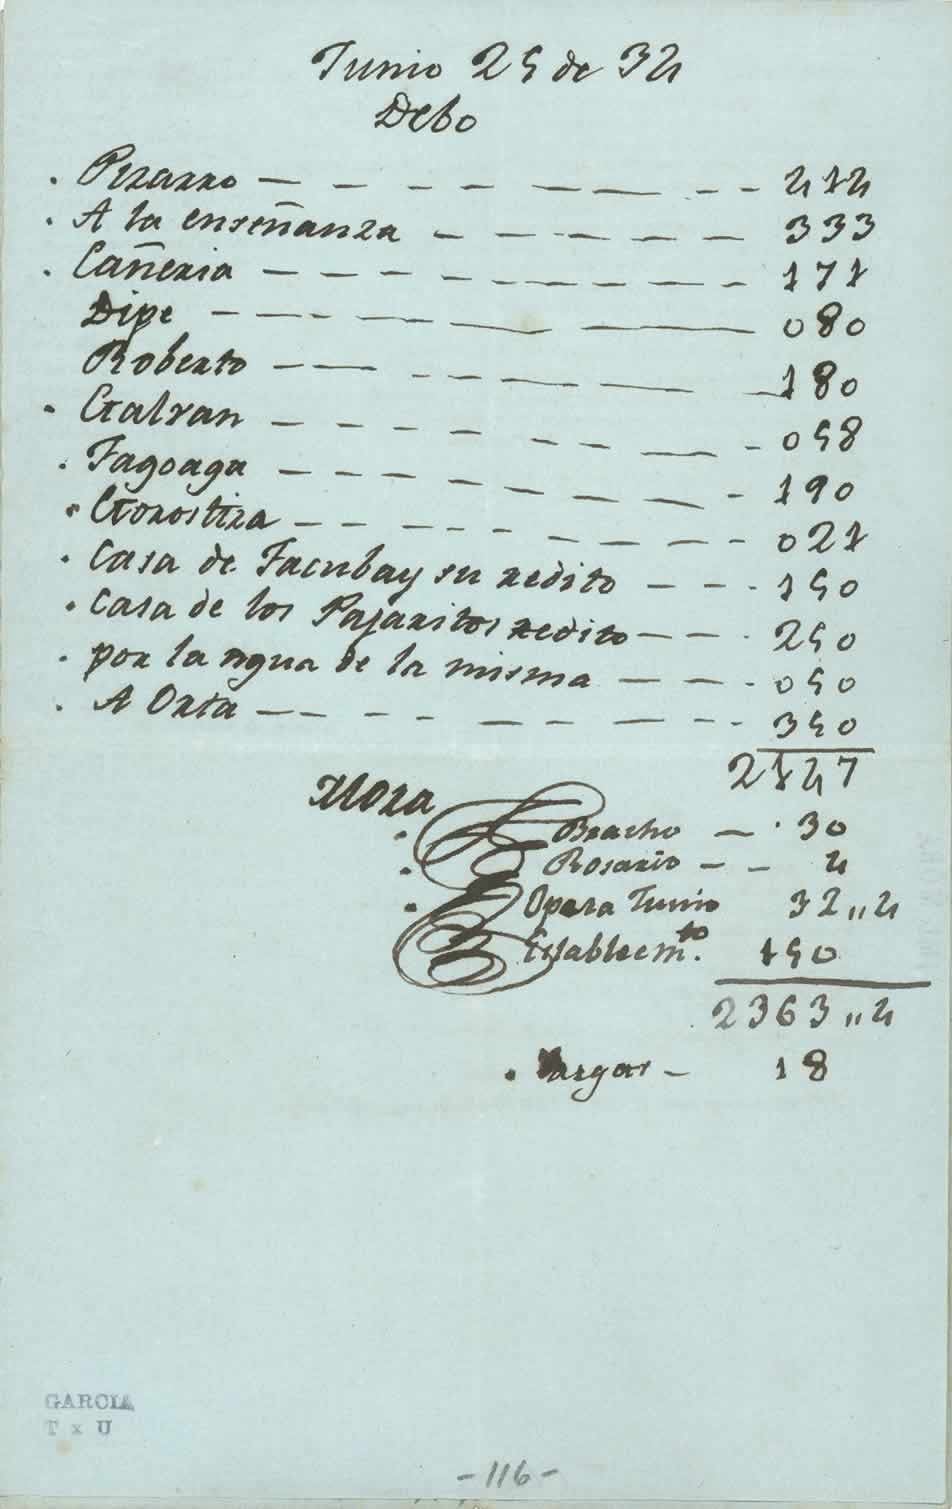 Junio 25 de 34
Debo
. Pizarro — 414
. A la enseñanza — 333
. Cañeria — 171
Dipe — 080
Roberto — 180
. Galvan — 058
. Fagoaga — 190
. Gorostiza — 021
. Casa de Tacubay su redito — 150
. Casa de los Pajaritos redito — 250
. por la agua de la misma — 050
. A Orta — 350
2147
Mora
. Bracho — 30
. Rosario — 4
. Opera Junio 32,,4
Establecm.to 150
2363,,4
. Vargas — 18
GARCIA
T x U
-116-